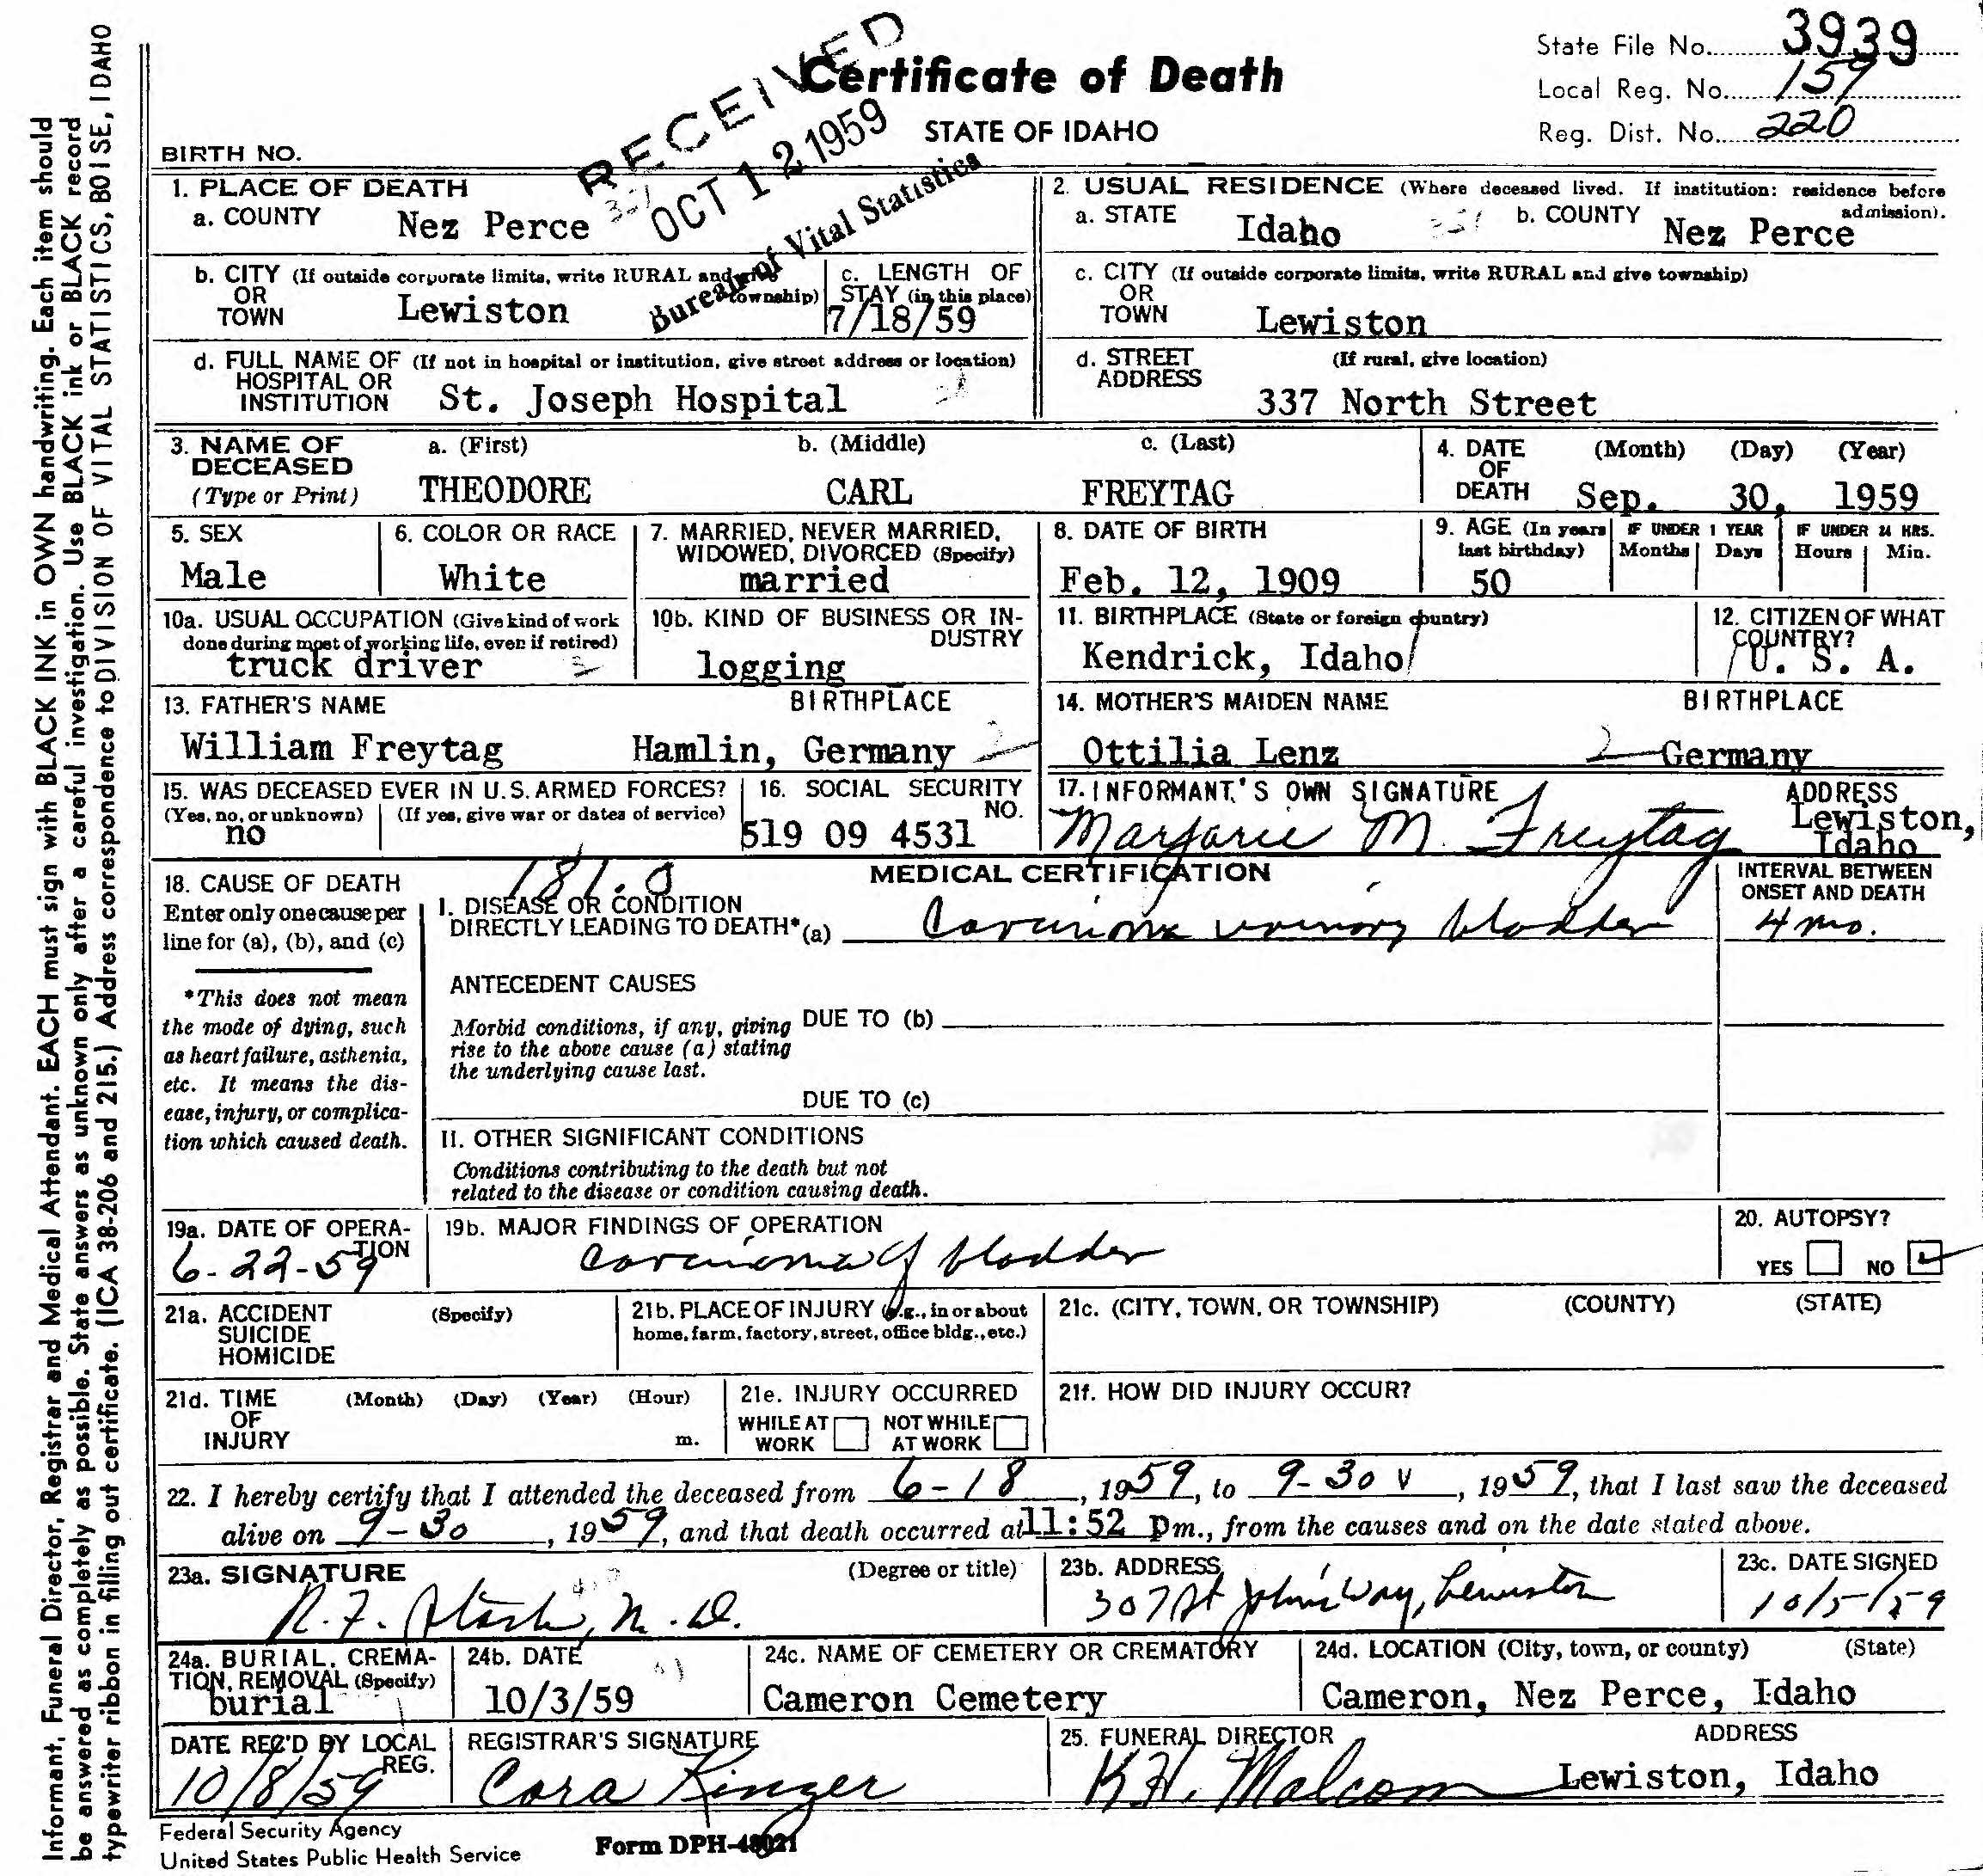 Informant, Funeral Director, Registrar and Medical Attendant. EACH must sign with BLACK INK in OWN handwriting. Each item should
be answered as completely as possible. State answers as unknown only after a careful investigation. Use BLACK ink or BLACK record
typewriter ribbon in filling out certificate. (ICA 38-206 and 215.) Address correspondence to DIVISION OF VITAL STATISTICS, BOISE, IDAHO
RECEIVED
OCT 12 1959
Bureau of Vital Statistics
Certificate of Death
STATE OF IDAHO
State File No. 3939
Local Reg. No. 159
Reg. Dist. No. 220
BIRTH NO.
1. PLACE OF DEATH
a. COUNTY Nez Perce
2. USUAL RESIDENCE (Where deceased lived. If institution: residence before admission).
a. STATE Idaho b. COUNTY Nez Perce
b. CITY (If outside corporate limits, write RURAL and give township)
OR
TOWN Lewiston
c. LENGTH OF
STAY (in this place)
7/18/59
c. CITY (If outside corporate limits, write RURAL and give township)
OR
TOWN Lewiston
d. FULL NAME OF (If not in hospital or institution, give street address or location)
HOSPITAL OR
INSTITUTION St. Joseph Hospital
d. STREET (If rural, give location)
ADDRESS
337 North Street
3. NAME OF DECEASED
(Type or Print)
a. (First) b. (Middle) c. (Last)
THEODORE CARL FREYTAG
4. DATE (Month) (Day) (Year)
OF
DEATH Sep. 30, 1959
5. SEX
Male
6. COLOR OR RACE
White
7. MARRIED, NEVER MARRIED,
WIDOWED, DIVORCED (Specify)
married
8. DATE OF BIRTH
Feb. 12, 1909
9. AGE (In years last birthday)
50
IF UNDER 1 YEAR
Months Days
IF UNDER 24 HRS.
Hours Min.
10a. USUAL OCCUPATION (Give kind of work
done during most of working life, even if retired)
truck driver
10b. KIND OF BUSINESS OR IN-
DUSTRY
logging
11. BIRTHPLACE (State or foreign country)
Kendrick, Idaho
12. CITIZEN OF WHAT
COUNTRY?
U. S. A.
13. FATHER'S NAME BIRTHPLACE
William Freytag Hamlin, Germany
14. MOTHER'S MAIDEN NAME BIRTHPLACE
Ottilia Lenz Germany
15. WAS DECEASED EVER IN U.S. ARMED FORCES?
(Yes, no, or unknown) (If yes, give war or dates of service)
no
16. SOCIAL SECURITY
NO.
519 09 4531
17. INFORMANT'S OWN SIGNATURE ADDRESS
Marjorie M. Freytag Lewiston,
Idaho
18. CAUSE OF DEATH
Enter only one cause per
line for (a), (b), and (c)
*This does not mean
the mode of dying, such
as heart failure, asthenia,
etc. It means the dis-
ease, injury, or complica-
tion which caused death.
181.0
MEDICAL CERTIFICATION
INTERVAL BETWEEN
ONSET AND DEATH
I. DISEASE OR CONDITION
DIRECTLY LEADING TO DEATH* (a) Carcinoma urinary bladder 4 mo.
ANTECEDENT CAUSES
Morbid conditions, if any, giving
rise to the above cause (a) stating
the underlying cause last.
DUE TO (b)
DUE TO (c)
II. OTHER SIGNIFICANT CONDITIONS
Conditions contributing to the death but not
related to the disease or condition causing death.
19a. DATE OF OPERA-
TION
6-22-59
19b. MAJOR FINDINGS OF OPERATION
Carcinoma of bladder
20. AUTOPSY?
YES NO
21a. ACCIDENT (Specify)
SUICIDE
HOMICIDE
21b. PLACE OF INJURY (e.g., in or about
home, farm, factory, street, office bldg., etc.)
21c. (CITY, TOWN, OR TOWNSHIP) (COUNTY) (STATE)
21d. TIME (Month) (Day) (Year) (Hour)
OF
INJURY m.
21e. INJURY OCCURRED
WHILE AT WORK NOT WHILE AT WORK
21f. HOW DID INJURY OCCUR?
22. I hereby certify that I attended the deceased from 6-18, 1959, to 9-30, 1959, that I last saw the deceased
alive on 9-30, 1959, and that death occurred at 11:52 pm., from the causes and on the date stated above.
23a. SIGNATURE (Degree or title)
R. F. M.D.
23b. ADDRESS
307 St John's Way, Lewiston
23c. DATE SIGNED
10/5/59
24a. BURIAL, CREMA-
TION, REMOVAL (Specify)
burial
24b. DATE
10/3/59
24c. NAME OF CEMETERY OR CREMATORY
Cameron Cemetery
24d. LOCATION (City, town, or county) (State)
Cameron, Nez Perce, Idaho
DATE REC'D BY LOCAL
REG.
10/8/59
REGISTRAR'S SIGNATURE
Cora Kinzer
25. FUNERAL DIRECTOR ADDRESS
K.H. Malcom Lewiston, Idaho
Federal Security Agency
United States Public Health Service
Form DPH-48021